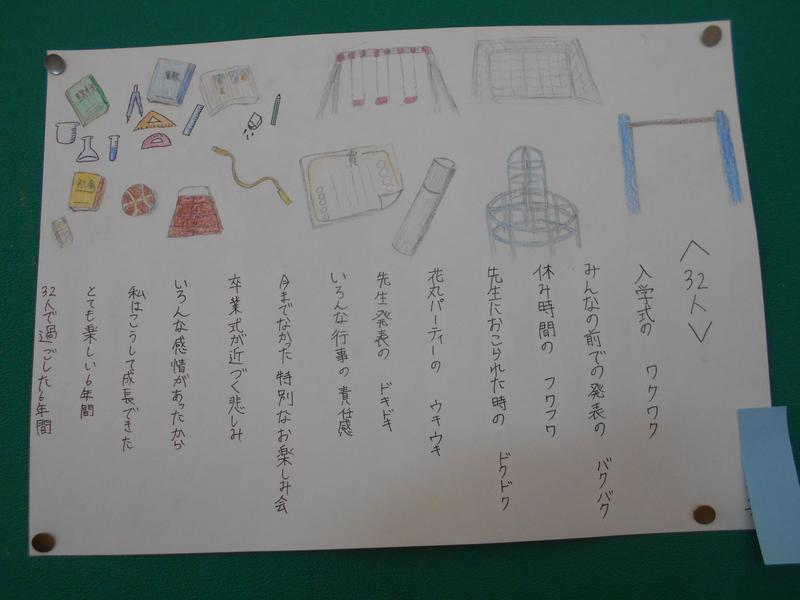 〈32人〉
入学式の ワクワク
みんなの前での発表の バクバク
休み時間の フワフワ
先生におこられた時の ドクドク
花丸パーティーの ウキウキ
先生発表の ドキドキ
いろんな行事の責任感
今までなかった特別なお楽しみ会
卒業式が近づく悲しみ
いろんな感情があったから
私はこうして成長できた
とても楽しい6年間
32人で過ごした6年間
賞